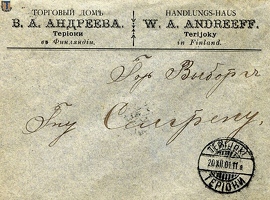 ТОРГОВЫЙ ДОМЪ
В. А. АНДРЕЕВА.
Теріоки
въ Финляндіи.
HANDLUNGS-HAUS
W. A. ANDREEFF.
Terijoky
in Finland.
Гор Выборгъ
Гну
TERIJOKI
20 XII 01 11
ТЕРІОКИ